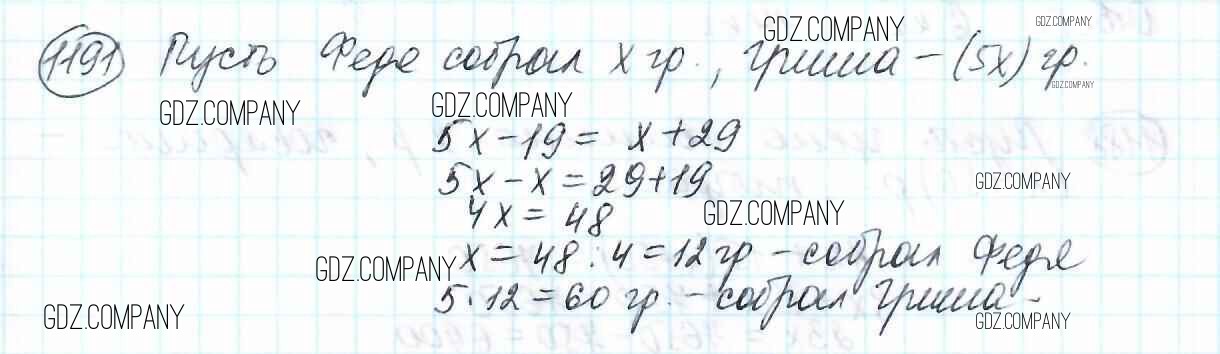 GDZ.COMPANY GDZ.COMPANY
1191 Пусть Федя собрал x гр., Гриша – (5x) гр.
GDZ.COMPANY GDZ.COMPANY GDZ.COMPANY
5x – 19 = x + 29
5x – x = 29 + 19 GDZ.COMPANY
4x = 48 GDZ.COMPANY
GDZ.COMPANY x = 48 : 4 = 12 гр – собрал Федя
5 · 12 = 60 гр. – собрал Гриша –
GDZ.COMPANY GDZ.COMPANY